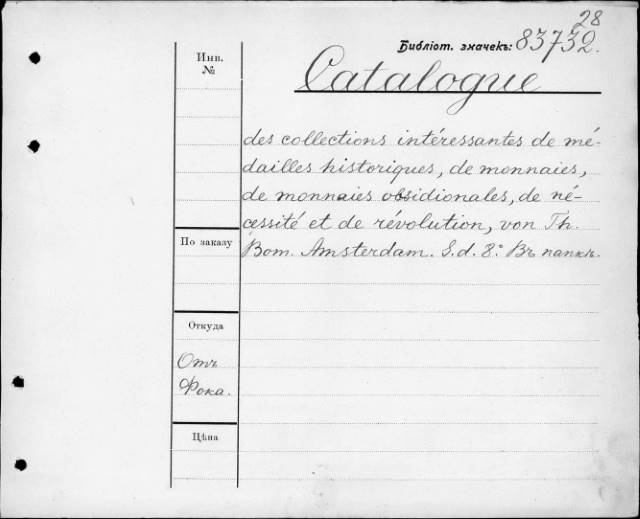 28
Библіот. значекъ: 83732.
Инв.
№
Catalogue
des collections intéressantes de mé-
dailles historiques, de monnaies,
de monnaies obsidionales, de né-
cessité et de révolution, von Th.
По заказу
Bom. Amsterdam. S.d. 8.° Въ папкѣ.
Откуда
Отъ
Фока.
Цѣна